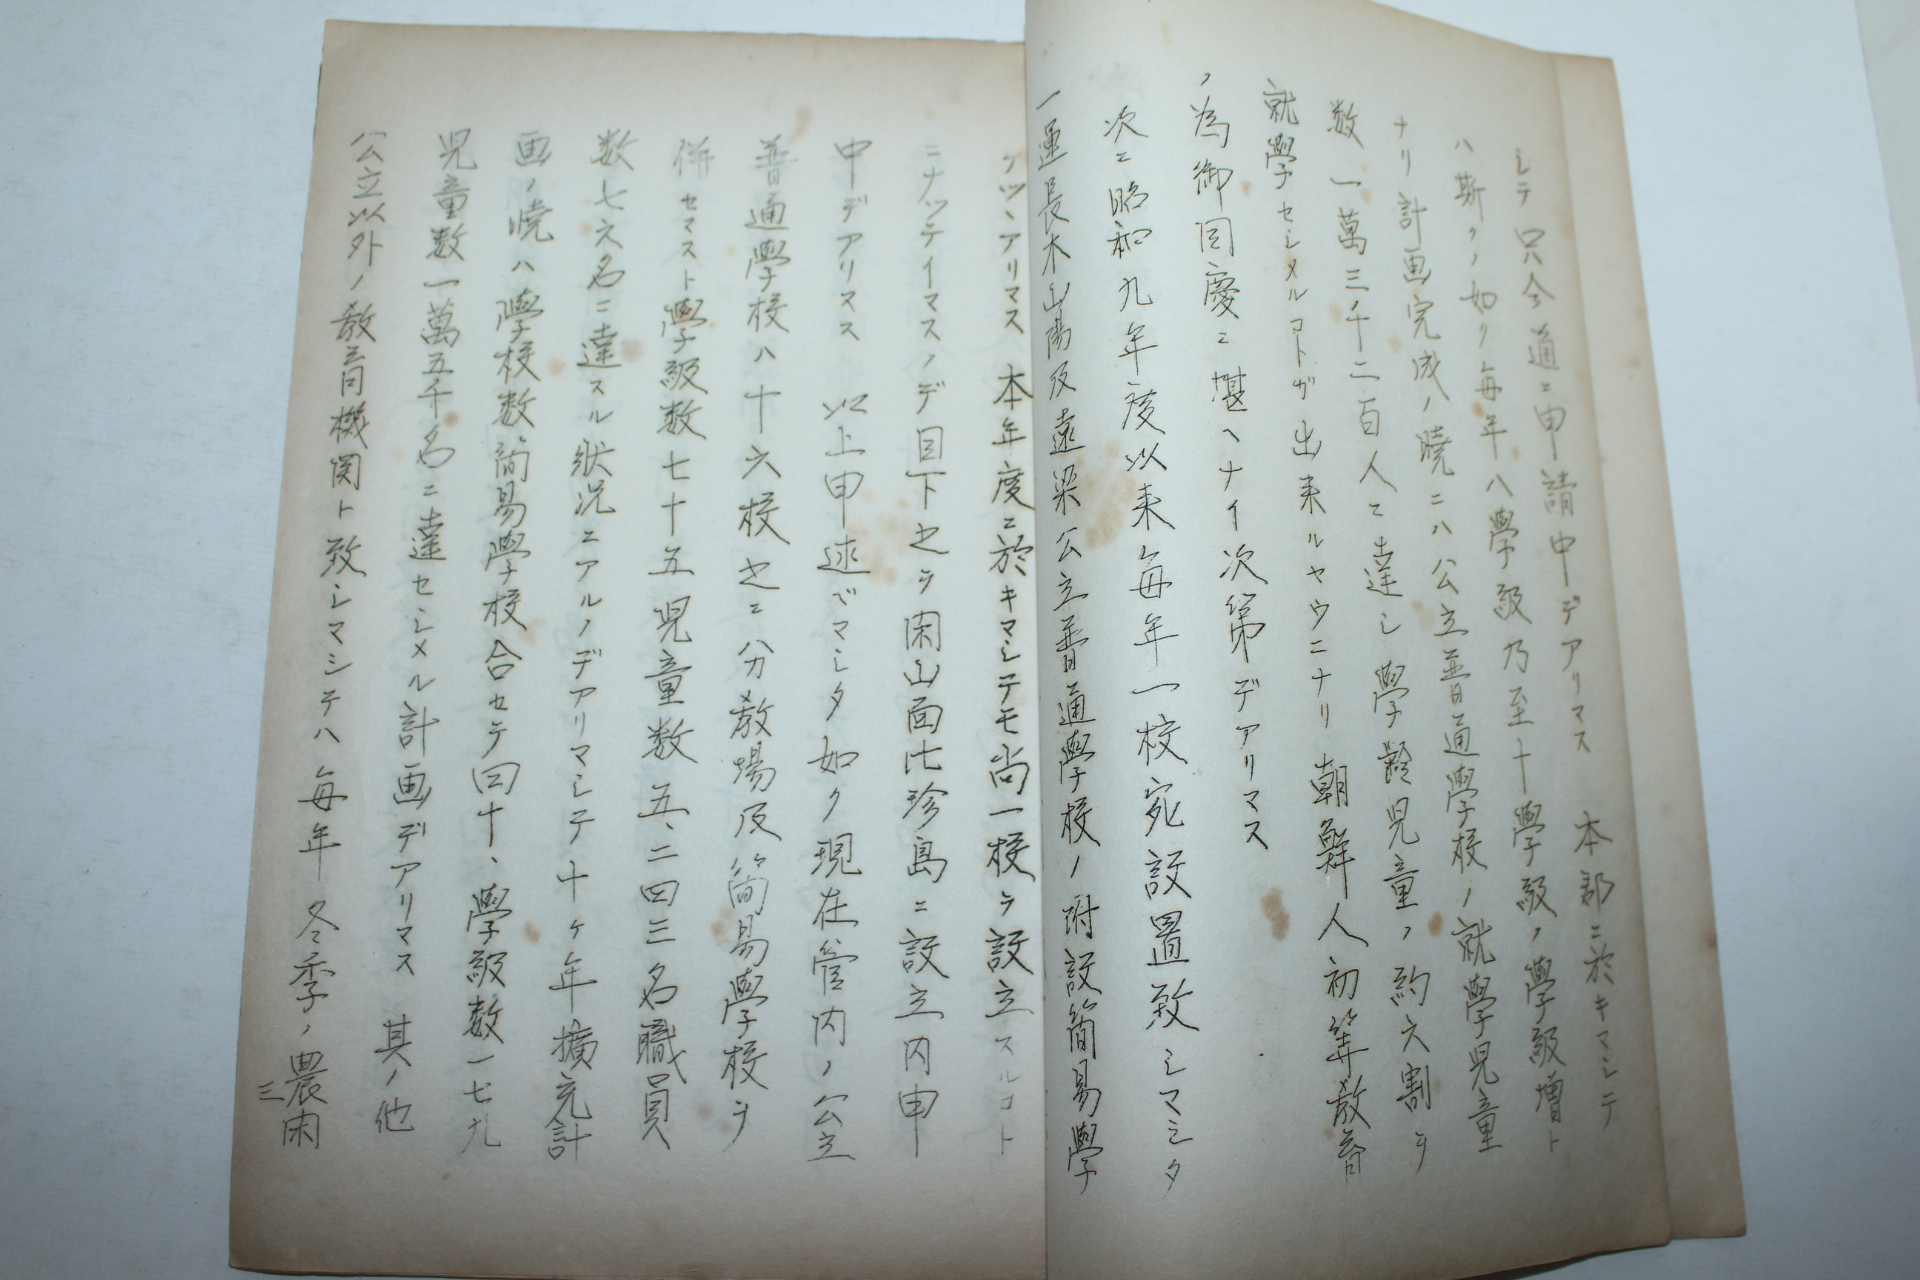 シテ只今道ニ申請中デアリマス　本郡ニ於キマシテ
ハ斯クノ如ク毎年八學級乃至十學級ノ學級増ト
ナリ計画完成ノ曉ニハ公立普通學校ノ就學児童
数一萬三千二百人ニ達シ學齡児童ノ約六割ヲ
就學セシメルコトガ出来ルヤウニナリ朝鮮人初等教育
ノ為御同慶ニ堪ヘナイ次第デアリマス
次ニ昭和九年度以来毎年一校宛設置致シマシタ
一運長木山陽及遠梁公立普通學校ノ附設簡易學
ケツヽアリマス　本年度ニ於キマシテモ尚一校ヲ設立スルコト
ニナッテイマスノデ目下之ヲ閑山面比珍島ニ設立内申
中デアリマス　以上申述ベマシタ如ク現在管内ノ公立
普通學校ハ十六校之ニ分教場及簡易學校ヲ
併セマスト學級数七十五児童数五、二四三名職員
数七六名ニ達スル状況ニアルノデアリマシテ十ヶ年擴充計
画ノ曉ハ學校数簡易學校合セテ四十、學級数一七九
児童数一萬五千名ニ達セシメル計画デアリマス　其ノ他
公立以外ノ教育機関ト致シマシテハ毎年冬季ノ農閑
三